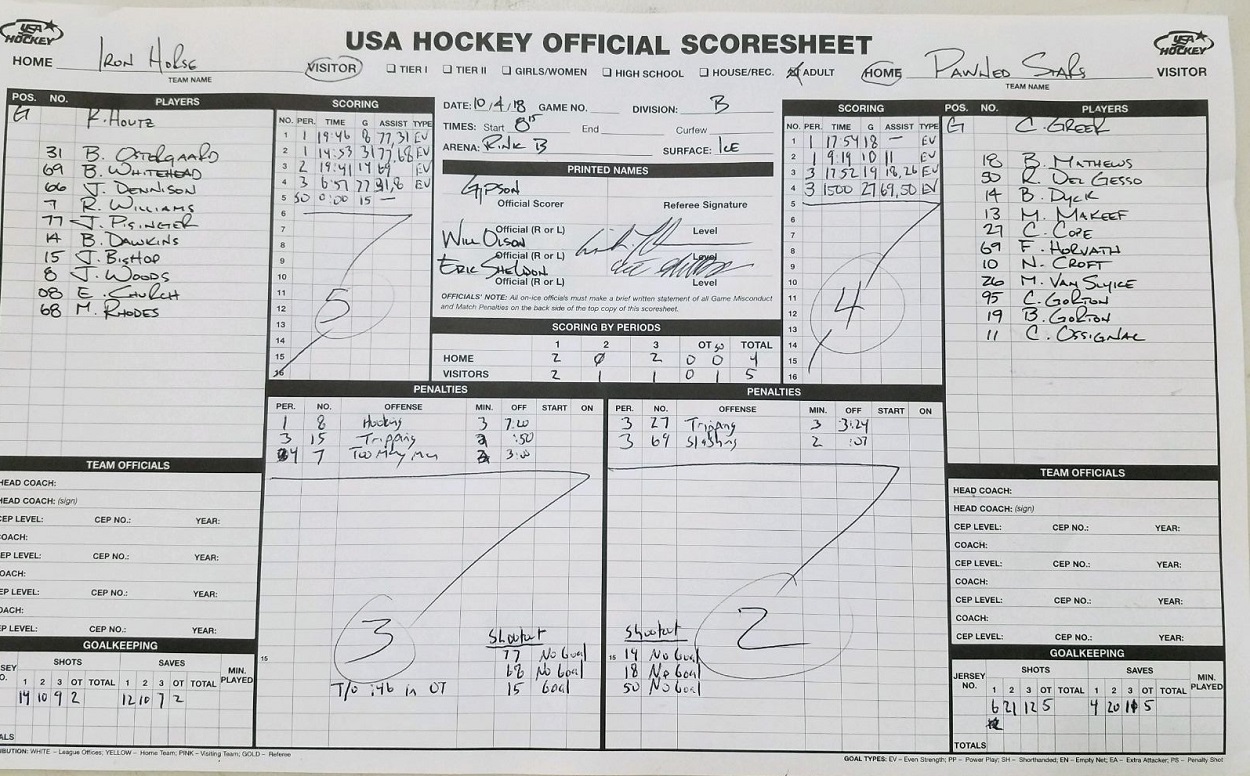 USA HOCKEY OFFICIAL SCORESHEET
USA HOCKEY
HOME IRON HORSE VISITOR
TEAM NAME
TIER I TIER II GIRLS/WOMEN HIGH SCHOOL HOUSE/REC. ADULT
HOME PAWNED STARS VISITOR
TEAM NAME
USA HOCKEY
POS. NO. PLAYERS
G R. HOUTZ
31 B. OSTERGAARD
69 B. WHITEHEAD
66 J. DENNISON
7 R. WILLIAMS
77 J. PISINGER
14 B. DAWKINS
15 J. BISHOP
8 J. WOODS
08 E. CHURCH
68 M. RHODES
SCORING
NO. PER. TIME G ASSIST TYPE
1 1 19:46 8 77,31 EV
2 1 14:53 31 77,68 EV
3 2 19:41 14 69 EV
4 3 6:51 77 31,8 EV
5 SO 0:00 15 —
6
7
8
9
10
11
12
13
14
15
16
5
DATE: 10/4/18 GAME NO. DIVISION: B
TIMES: Start 8:15 End Curfew
ARENA: RINK B SURFACE: ICE
PRINTED NAMES
GIPSON
Official Scorer Referee Signature
Official (R or L) Level
WILL OLSON
Official (R or L) Level
ERIC SHELDON
Official (R or L) Level
OFFICIALS' NOTE: All on-ice officials must make a brief written statement of all Game Misconduct
and Match Penalties on the back side of the top copy of this scoresheet.
SCORING BY PERIODS
1 2 3 OT SO TOTAL
HOME 2 0 2 0 0 4
VISITORS 2 1 1 0 1 5
SCORING
NO. PER. TIME G ASSIST TYPE
1 1 17 54 18 — EV
2 1 9:19 10 11 EV
3 3 17:52 19 18,26 EV
4 3 1500 27 69,50 EV
5
6
7
8
9
10
11
12
13
14
15
16
4
POS. NO. PLAYERS
G C. GREER
18 B. MATHEWS
50 R. DEL GESSO
14 B. DYCK
13 M. MAKEEF
27 C. COPE
69 F. HORVATH
10 N. CROFT
26 M. VAN SLYKE
95 C. GORTON
19 B. GORTON
11 C. OSSIGNAC
PENALTIES
PER. NO. OFFENSE MIN. OFF START ON
1 8 Hooking 3 7:20
3 15 Tripping 2 :50
4 7 Too Many Men 2 3:00
3
15
Shootout
77 No Goal
68 No Goal
15 Goal
T/O :46 in OT
PENALTIES
PER. NO. OFFENSE MIN. OFF START ON
3 27 Tripping 3 3:24
3 69 Slashing 2 :07
2
Shootout
15 14 No Goal
18 No Goal
50 No Goal
TEAM OFFICIALS
HEAD COACH:
HEAD COACH: (sign)
CEP LEVEL: CEP NO.: YEAR:
COACH:
CEP LEVEL: CEP NO.: YEAR:
COACH:
CEP LEVEL: CEP NO.: YEAR:
COACH:
CEP LEVEL: CEP NO.: YEAR:
GOALKEEPING
SHOTS SAVES
1 2 3 OT TOTAL 1 2 3 OT TOTAL MIN. PLAYED
14 10 9 2 12 10 7 2
TEAM OFFICIALS
HEAD COACH:
HEAD COACH: (sign)
CEP LEVEL: CEP NO.: YEAR:
COACH:
CEP LEVEL: CEP NO.: YEAR:
COACH:
CEP LEVEL: CEP NO.: YEAR:
COACH:
CEP LEVEL: CEP NO.: YEAR:
GOALKEEPING
JERSEY NO. SHOTS SAVES MIN. PLAYED
1 2 3 OT TOTAL 1 2 3 OT TOTAL
6 21 12 5 4 20 10 5
TOTALS
BUTION: WHITE – League Offices; YELLOW – Home Team; PINK – Visiting Team; GOLD – Referee
GOAL TYPES: EV – Even Strength; PP – Power Play; SH – Shorthanded; EN – Empty Net; EA – Extra Attacker; PS – Penalty Shot